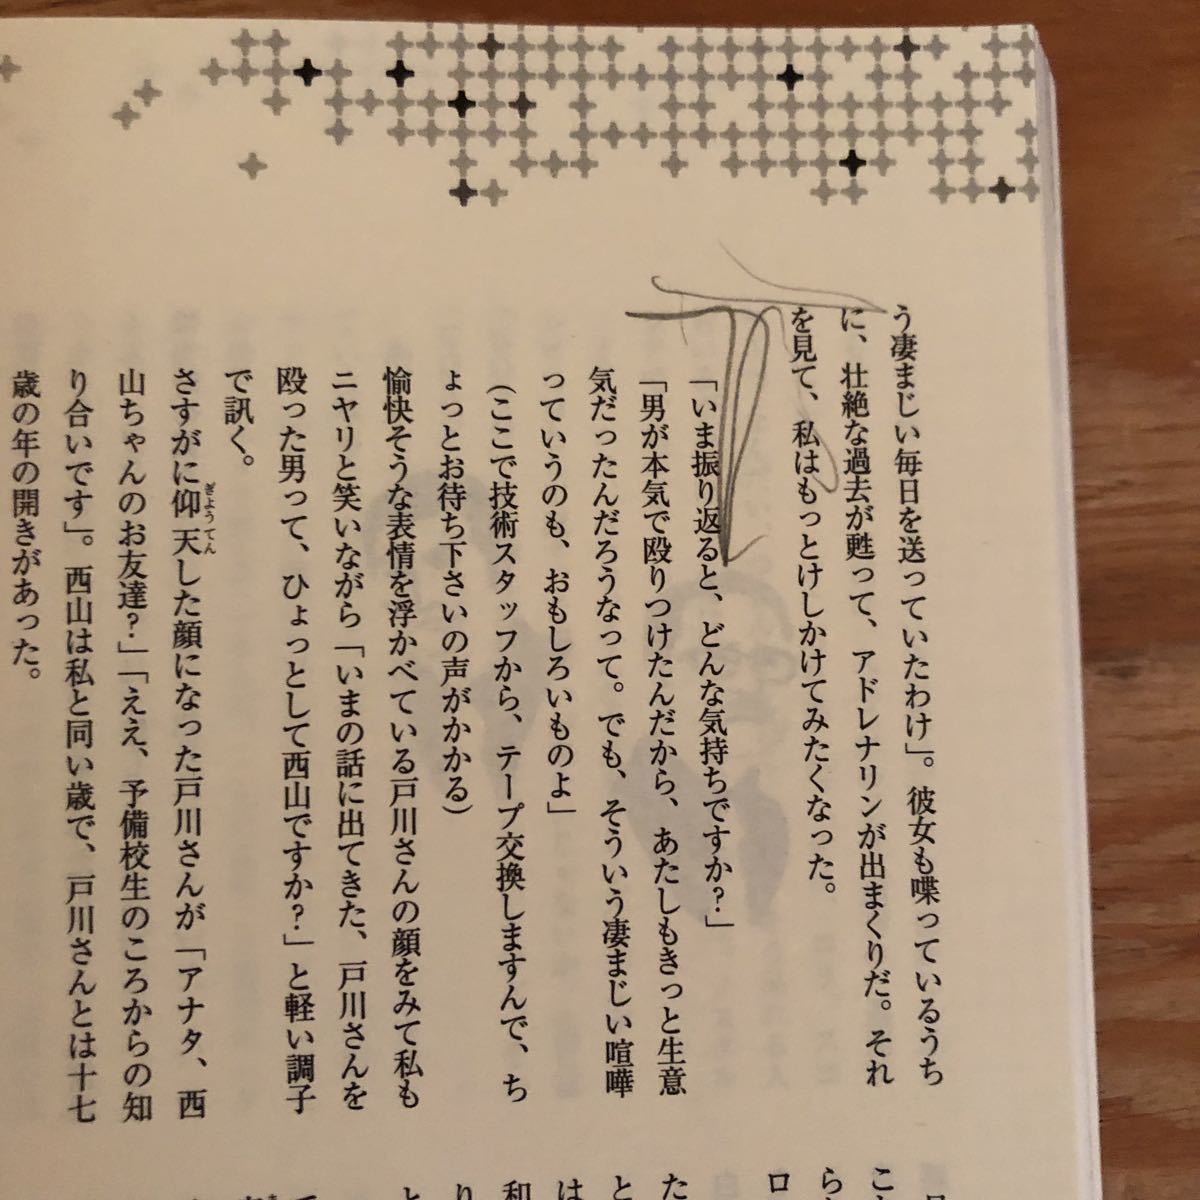 う凄まじい毎日を送っていたわけ」。彼女も喋っているうち
に、壮絶な過去が甦って、アドレナリンが出まくりだ。それ
を見て、私はもっとけしかけてみたくなった。
「いま振り返ると、どんな気持ちですか？」
「男が本気で殴りつけたんだから、あたしもきっと生意
気だったんだろうなって。でも、そういう凄まじい喧嘩
っていうのも、おもしろいものよ」
（ここで技術スタッフから、テープ交換しますんで、ち
ょっとお待ち下さいの声がかかる）
愉快そうな表情を浮かべている戸川さんの顔をみて私も
ニヤリと笑いながら「いまの話に出てきた、戸川さんを
殴った男って、ひょっとして西山ですか？」と軽い調子
で訊く。
さすがに仰天した顔になった戸川さんが「アナタ、西
ぎょうてん
山ちゃんのお友達？」「ええ、予備校生のころからの知
り合いです」。西山は私と同い歳で、戸川さんとは十七
歳の年の開きがあった。